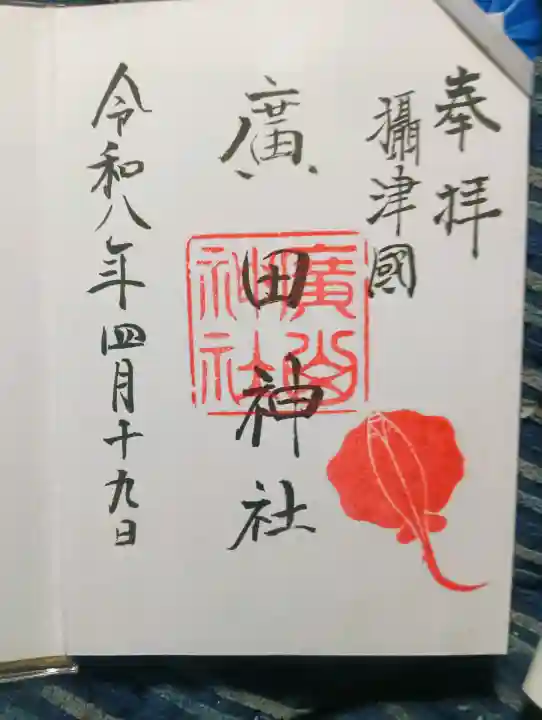 奉拝
攝津國
廣田神社
廣田
神社
令和八年四月十九日